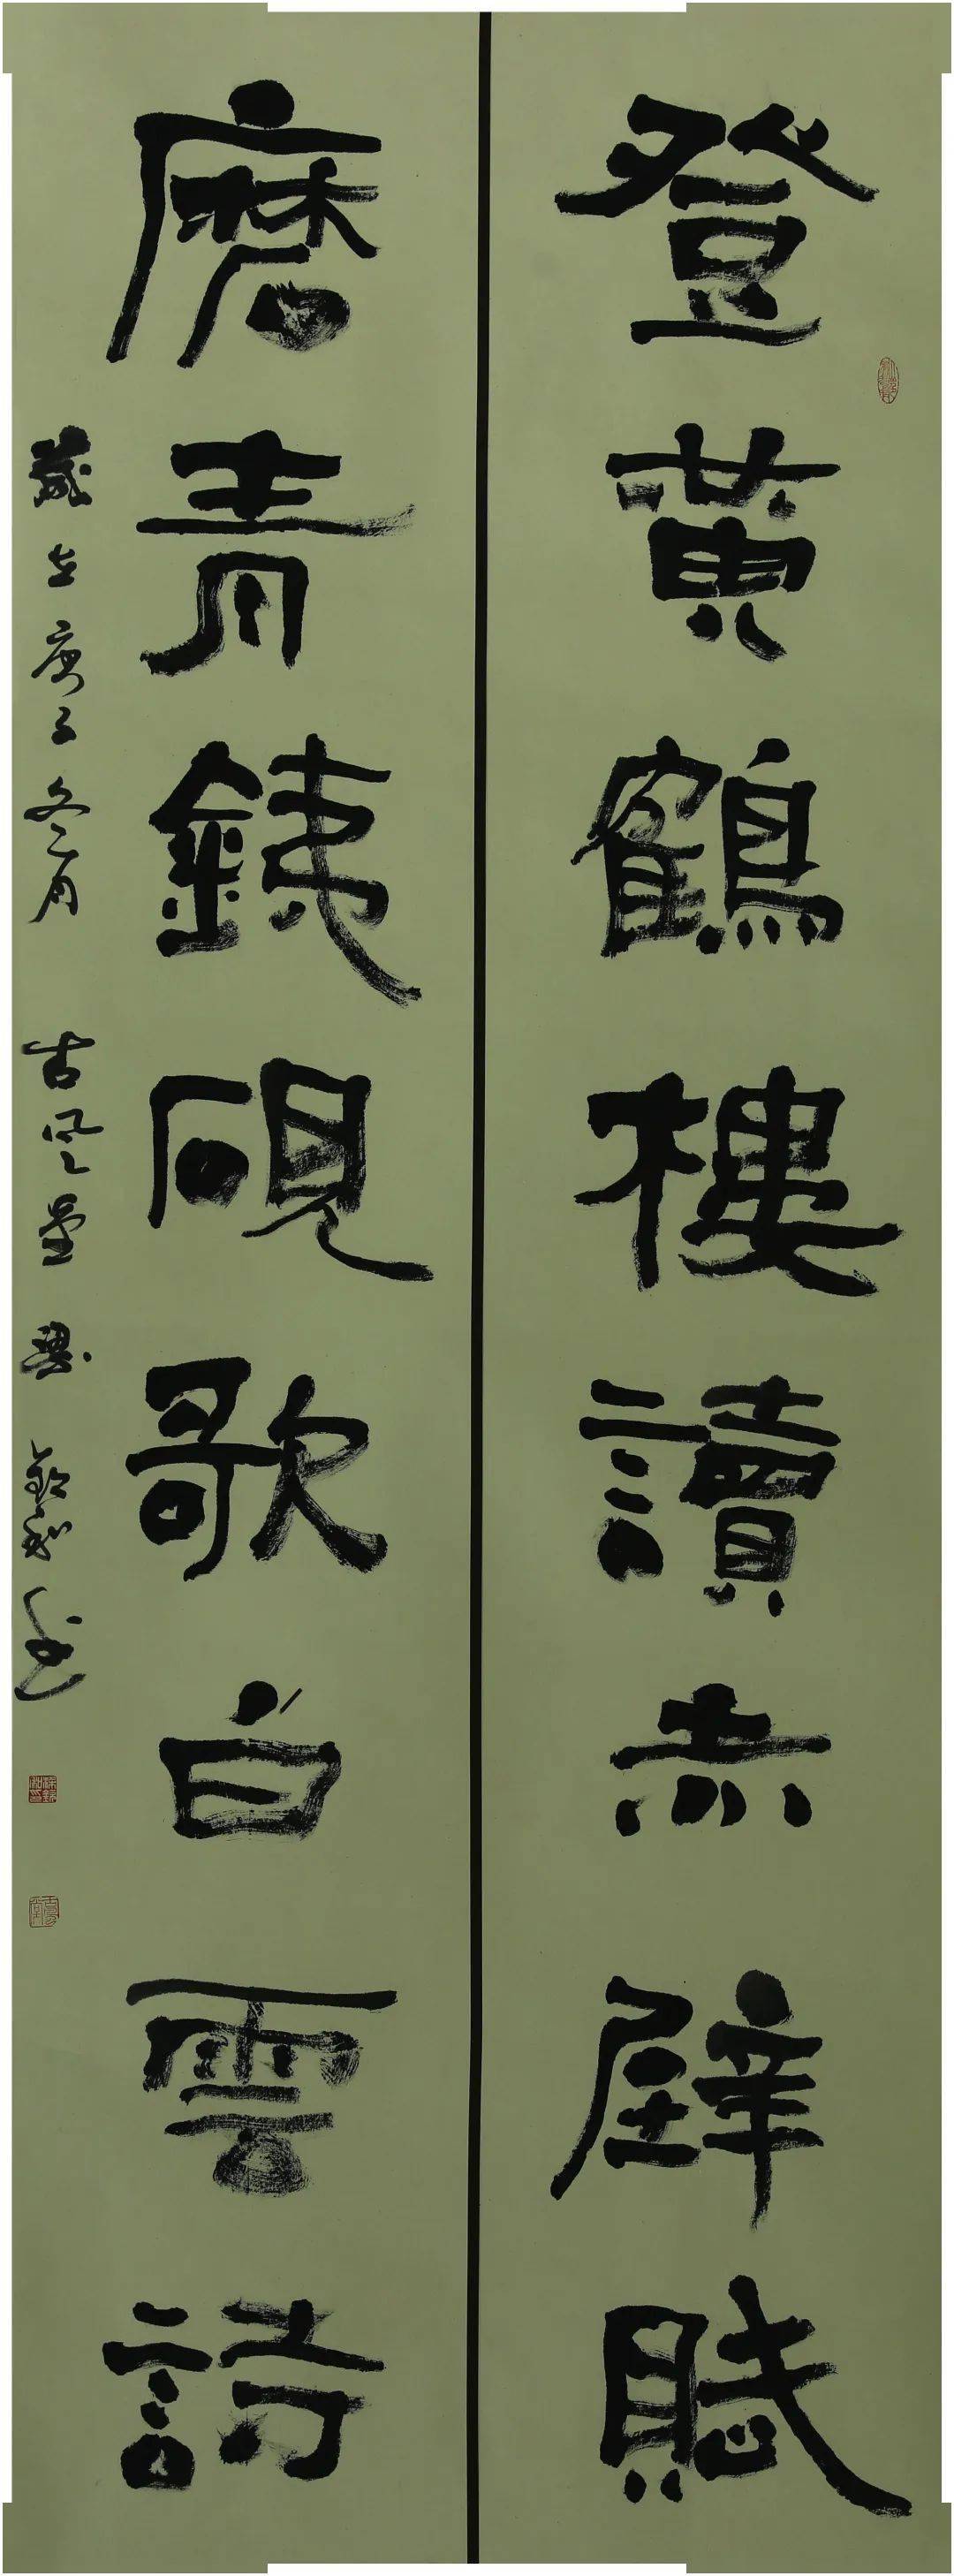 登黄鶴樓讀赤壁賦
磨青鐵硯歌白雲詩
歲在庚子冬月 古風堂